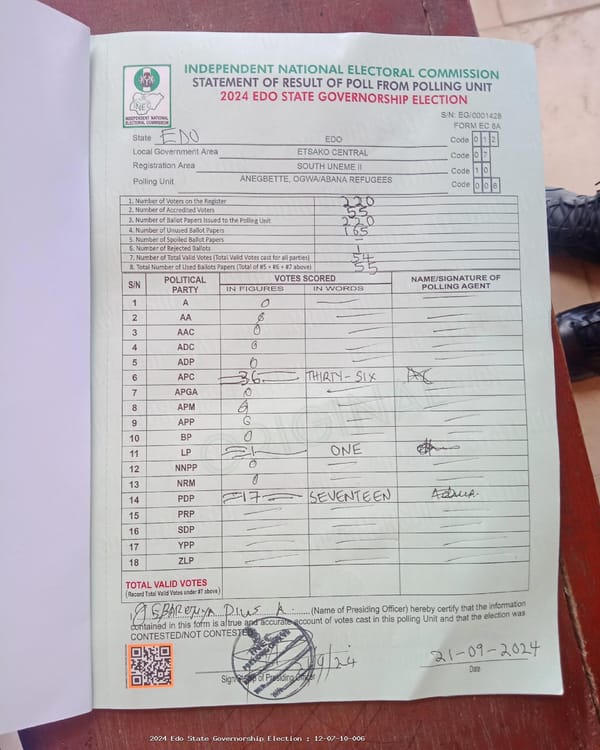 INDEPENDENT NATIONAL ELECTORAL COMMISSION
STATEMENT OF RESULT OF POLL FROM POLLING UNIT
2024 EDO STATE GOVERNORSHIP ELECTION
INEC
INDEPENDENT NATIONAL ELECTORAL COMMISSION
S/N: EG/0001428
FORM EC 8A
State EDO EDO Code 0 1 2
Local Government Area ETSAKO CENTRAL Code 0 7
Registration Area SOUTH UNEME II Code 1 0
Polling Unit ANEGBETTE, OGWA/ABANA REFUGEES Code 0 0 6
1. Number of Voters on the Register 220
2. Number of Accredited Voters 55
3. Number of Ballot Papers Issued to the Polling Unit 220
4. Number of Unused Ballot Papers 165
5. Number of Spoiled Ballot Papers –
6. Number of Rejected Ballots 1
7. Number of Total Valid Votes (Total Valid Votes cast for all parties) 54
8. Total Number of Used Ballots Papers (Total of #5 + #6 + #7 above) 55
S/N POLITICAL PARTY VOTES SCORED NAME/SIGNATURE OF POLLING AGENT
IN FIGURES IN WORDS
1 A 0
2 AA 0
3 AAC 0
4 ADC 0
5 ADP 0
6 APC 36 THIRTY-SIX
7 APGA 0
8 APM 0
9 APP 0
10 BP 0
11 LP 1 ONE
12 NNPP 0
13 NRM 0
14 PDP 17 SEVENTEEN
15 PRP
16 SDP
17 YPP
18 ZLP
TOTAL VALID VOTES
(Record Total Valid Votes under #7 above)
I Pius A. (Name of Presiding Officer) hereby certify that the information
contained in this form is a true and accurate account of votes cast in this polling Unit and that the election was
CONTESTED/NOT CONTESTED
INEC
21-09-2024
Signature of Presiding Officer Date
2024 Edo State Governorship Election : 12-07-10-006